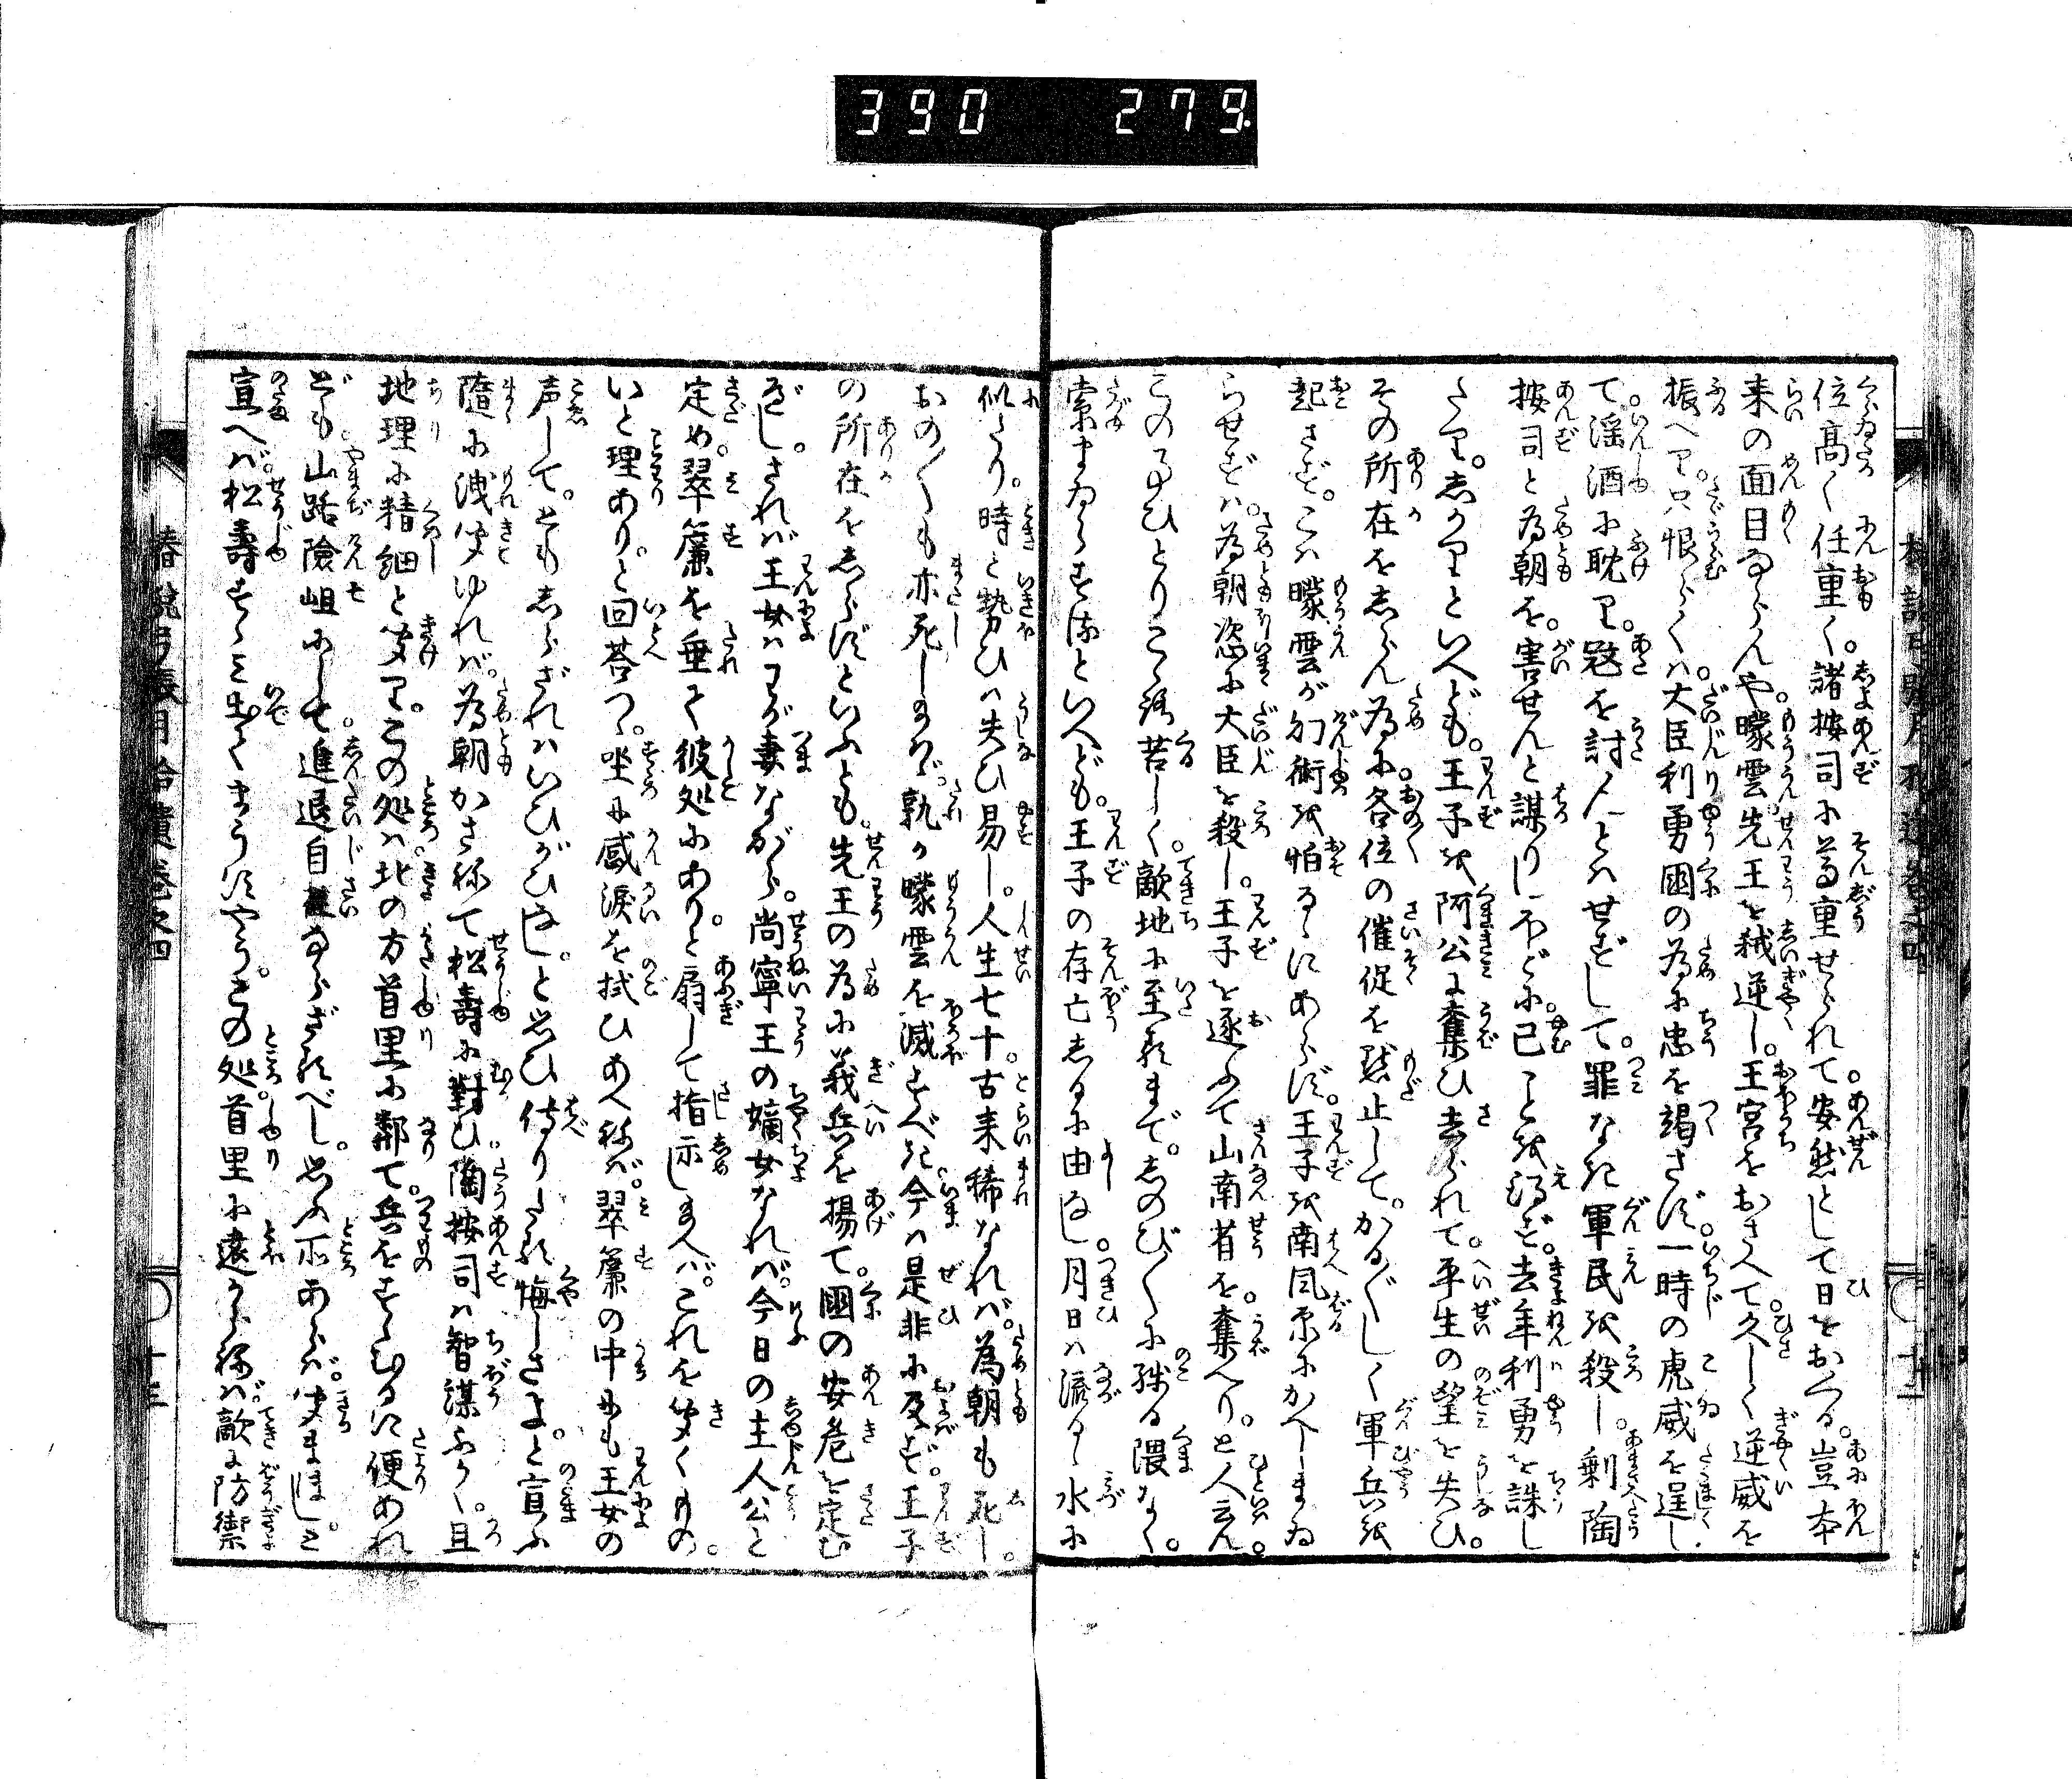 390 279
位高く任重く。諸按司に尊重せられて。安然として日をおくる。豈本
来の面目ならんや。曚雲先王を弑逆し。王宮をおさへて。久しく逆威を
振へり。只恨らくは。大臣利勇國の為に忠を竭さず。一時の虎威を逞し
て。淫酒に耽り。冦を討んとはせずして。罪なき軍民を殺し。剰陶
按司と為朝を。害せんと謀りしほどに。已ことを得ず。去年利勇を誅し
たり。しかりといへども。王子を阿公に奪ひ去られて。平生の望を失ひ。
その所在をしらん為に。各位の催促を黙止して。かるがるしく軍兵を
起さず。こは曚雲が幻術を怕るるにあらず。王子を南風原にかへしまゐ
らせずは。為朝恣に大臣を殺し。王子を逐ふて山南省を。奪へり。と人云ん。
この事ひとりこころ苦しく。敵地に至るまで。しのびしのびに殘る隈なく。
索まゐらするといへども。王子の存亡しるに由なし。月日は流るる水に
似たり。時と勢ひは失ひ易し。人生七十。古来稀なれば。為朝も死し。
おのおのも亦死しなば。孰か曚雲を滅すべき。今は是非に及ばず。王子
の所在をしらずといふとも。先王の為に義兵を揚て。國の安危を定む
べし。されば王女はわが妻ながら。尚寧王の嫡女なれば。今日の主人公と
定め。翠簾を垂て彼処にあり。と扇して指示し給へば。これを聞くもの。
いと理あり。と回荅つつ。坐に感涙を拭ひあへねば。翠簾の中にも王女の
声して。ともしらざればいひがひなし。と思ひ侍りたる悔しさよ。と宣ふ
隨に洩聞ゆれば。為朝かさねて松壽に對ひ。陶按司は智謀ふかく。且
地理に精細と聞り。この処は北の方首里に鄰て。兵をすすむるに便あれ
ども。山路險岨にして。進退自在ならざるべし。思ふ所あらば。聞まほし。と
宣へば。松壽すすみ出てまうすやう。この処。首里に遠からねば。敵に防禦
椿説弓張月拾遺巻之四